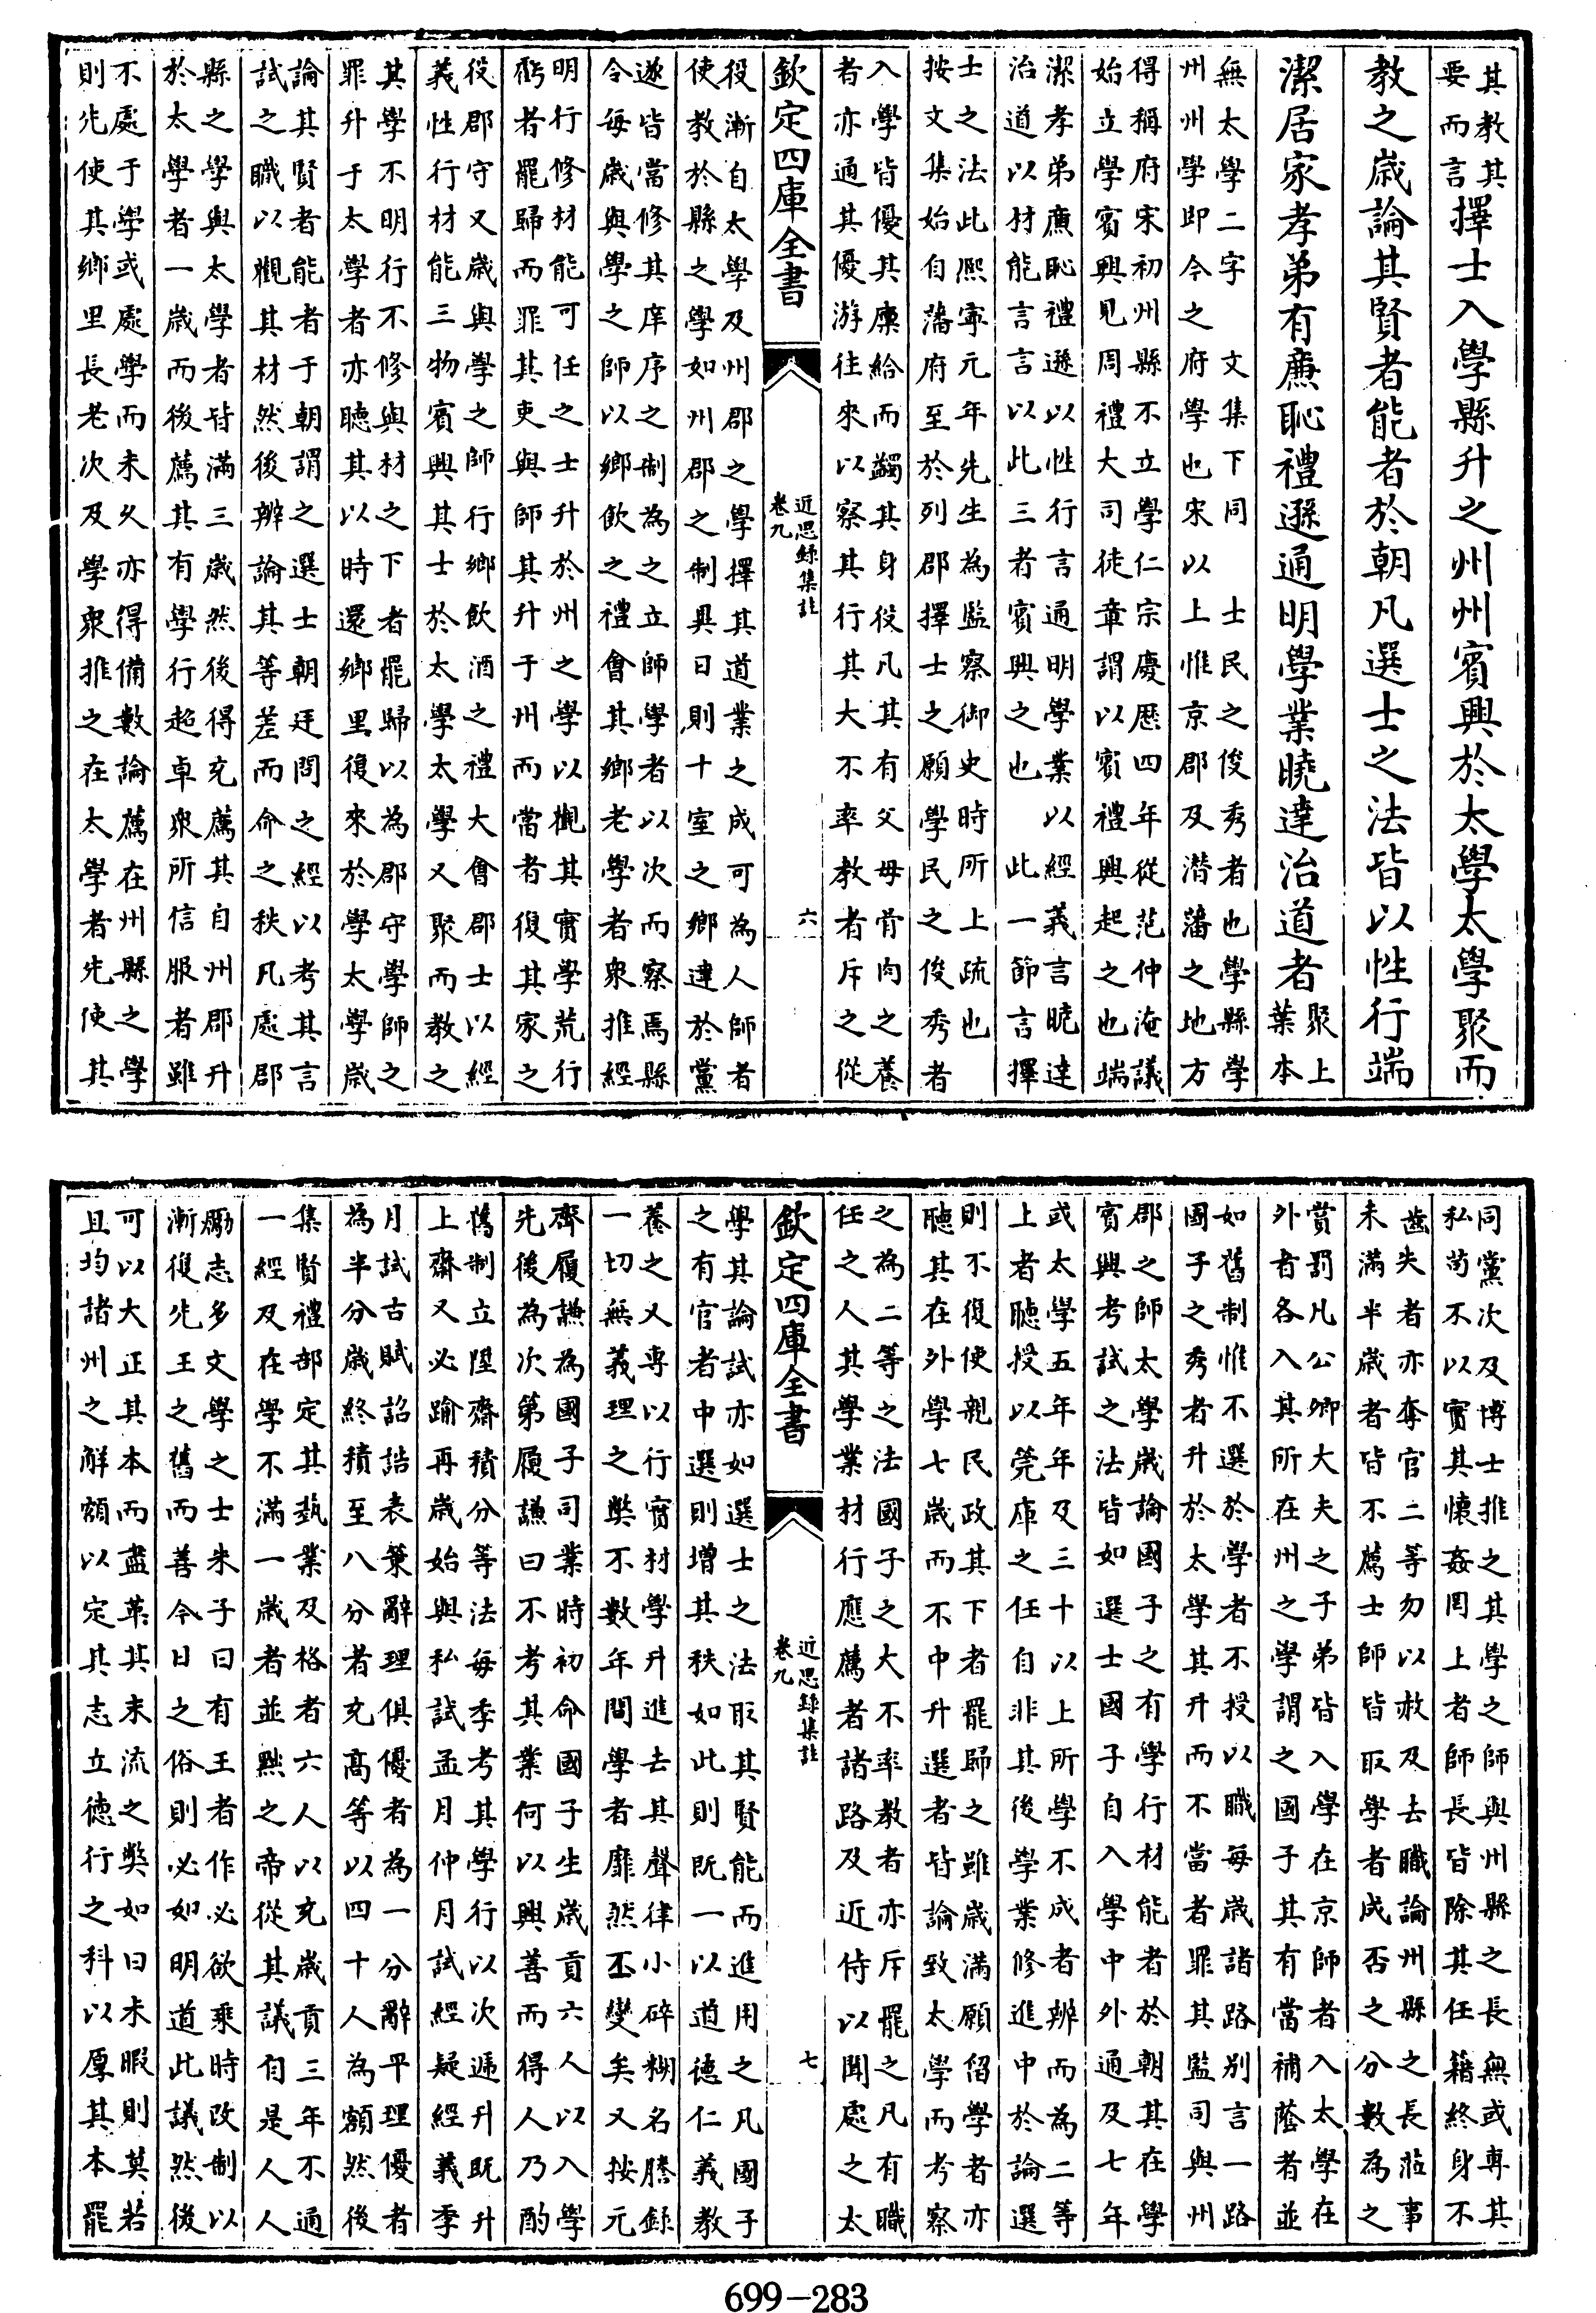 其教其
要而言
擇士入學縣升之州州賓興於太學太學聚而
教之歲論其賢者能者於朝凡選士之法皆以性行端
潔居家孝弟有廉恥禮遜通明學業曉達治道者
聚上
葉本
無太學二字　文集下同　士民之俊秀者也學縣學
州州學即今之府學也宋以上惟京郡及潛藩之地方
得稱府宋初州縣不立學仁宗慶歷四年從范仲淹議
始立學賓興見周禮大司徒章謂以賓禮興起之也端
潔孝弟廉恥禮遜以性行言通明學業以經義言曉達
治道以材能言言以此三者賓興之也　此一節言擇
士之法此熈寧元年先生為監察御史時所上疏也
按文集始自藩府至於列郡擇士之願學民之俊秀者
入學皆優其廩給而蠲其身役凡其有父母骨肉之養
者亦通其優游往來以察其行其大不率教者斥之從
欽定四庫全書
近思録集註
卷九
六
役漸自太學及州郡之學擇其道業之成可為人師者
使教於縣之學如州郡之制異日則十室之鄉達於黨
遂皆當修其庠序之制為之立師學者以次而察焉縣
令每歲與學之師以鄉飲之禮會其鄉老學者衆推經
明行修材能可任之士升於州之學以觀其實學荒行
虧者罷歸而罪其吏與師其升于州而當者復其家之
役郡守又歲與學之師行鄉飲酒之禮大會郡士以經
義性行材能三物賓興其士於太學太學又聚而教之
其學不明行不修與材之下者罷歸以為郡守學師之
罪升于太學者亦聽其以時還鄉里復來於學太學歲
論其賢者能者于朝謂之選士朝廷問之經以考其言
試之職以觀其材然後辨論其等差而命之秩凡處郡
縣之學與太學者皆滿三歲然後得充薦其自州郡升
於太學者一歲而後薦其有學行超卓衆所信服者雖
不處于學或處學而未久亦得備數論薦在州縣之學
則先使其鄉里長老次及學衆推之在太學者先使其
同黨次及博士推之其學之師與州縣之長無或專其
私苟不以實其懷姦罔上者師長皆除其任籍終身不
齒失者亦奪官二等勿以赦及去職論州縣之長蒞事
未滿半歲者皆不薦士師皆取學者成否之分數為之
賞罰凡公卿大夫之子弟皆入學在京師者入太學在
外者各入其所在州之學謂之國子其有當補蔭者並
如舊制惟不選於學者不授以職每歲諸路別言一路
國子之秀者升於太學其升而不當者罪其監司與州
郡之師太學歲論國子之有學行材能者於朝其在學
賓興考試之法皆如選士國子自入學中外通及七年
或太學五年年及三十以上所學不成者辨而為二等
上者聽授以筦庫之任自非其後學業修進中於論選
則不復使親民政其下者罷歸之雖歲滿願留學者亦
聽其在外學七歲而不中升選者皆論致太學而考察
之為二等之法國子之大不率教者亦斥罷之凡有職
任之人其學業材行應薦者諸路及近侍以聞處之太
欽定四庫全書
近思録集註
卷九
七
學其論試亦如選士之法取其賢能而進用之凡國子
之有官者中選則增其秩如此則既一以道德仁義教
養之又專以行實材學升進去其聲律小碎糊名謄録
一切無義理之弊不數年間學者靡然丕變矣又按元
齊履謙為國子司業時初命國子生歲貢六人以入學
先後為次第履謙曰不考其業何以興善而得人乃酌
舊制立陞齋積分等法每季考其學行以次遞升既升
上齋又必踰再歲始與私試孟月仲月試經疑經義季
月試古賦詔誥表策辭理俱優者為一分辭平理優者
為半分歲終積至八分者充高等以四十人為額然後
集賢禮部定其藝業及格者六人以充歲貢三年不通
一經及在學不滿一歲者並黜之帝從其議自是人人
勵志多文學之士朱子曰有王者作必欲乘時改制以
漸復先王之舊而善今日之俗則必如明道此議然後
可以大正其本而盡革其末流之弊如曰未暇則莫若
且均諸州之解額以定其志立德行之科以厚其本罷
699-283